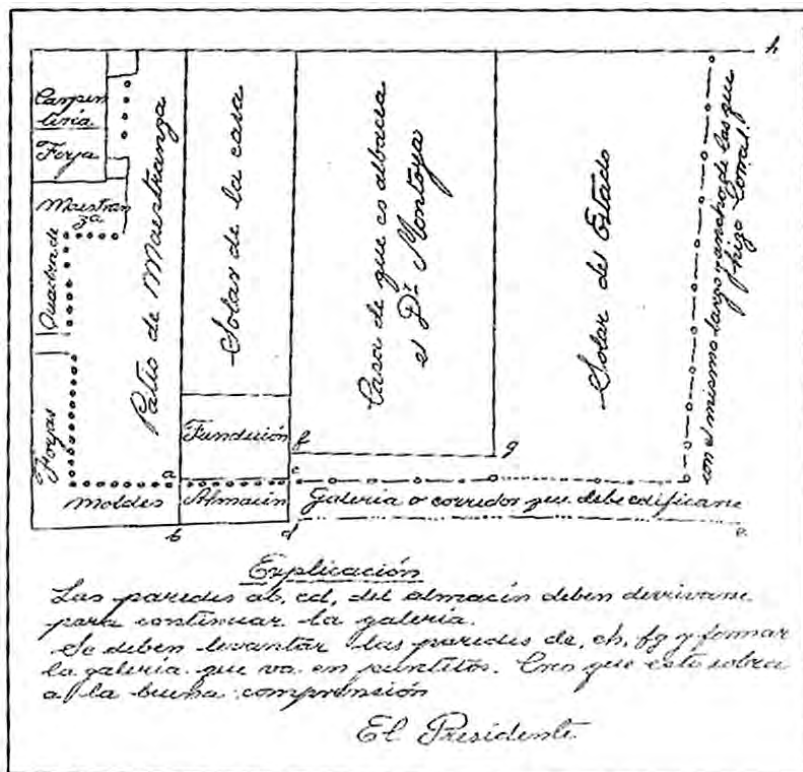 h
Carpin
tiria.
Forja
Maestran
za.
Quadra de
Forjas
Patio de Maestranza
Solar de la casa
Casa de que es albacia
el Dr. Montoya
Solar del Estado
con el mismo largo y ancho de las que
hizo Corral.
Fundición
f
g
a
c
Moldes
Almacin
Galeria o corredor que debe edificarse
b
d
e
Explicación
Las paredes ab, cd, del almacin deben derrivarse
para continuar la galería.
Se deben levantar las paredes de, eh, fg y formar
la galería que va en puntitos. Creo que esto sobra
a la buena comprensión
El Presidente